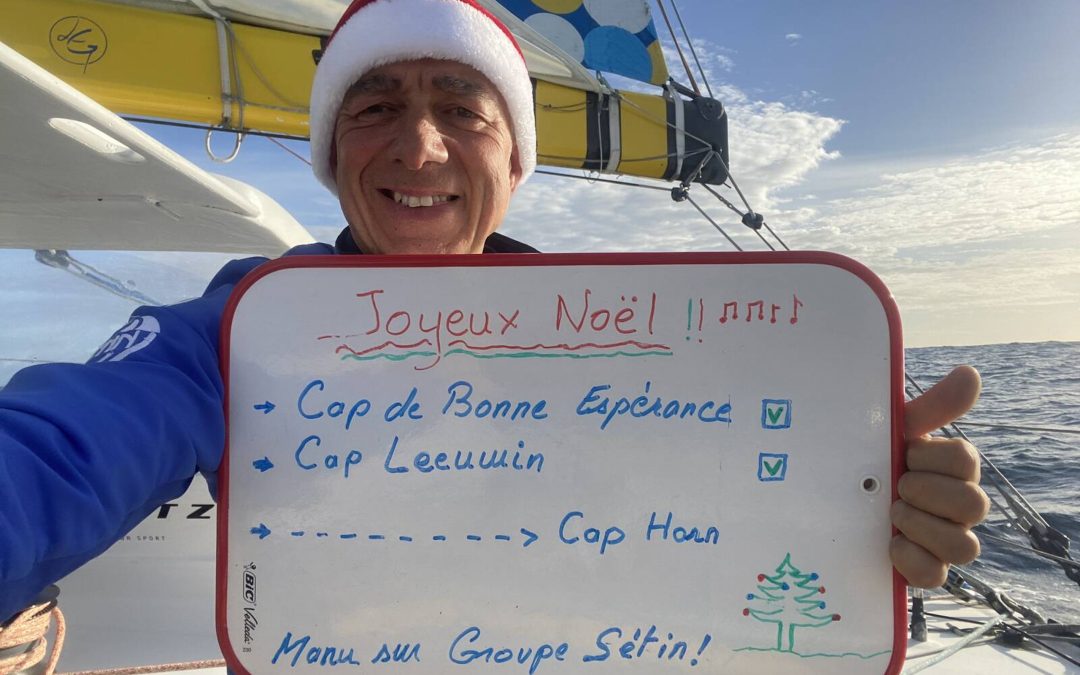 Joyeux Noël !!
→ Cap de Bonne Espérance ☑
→ Cap Leeuwin ☑
→ --------> Cap Horn
Manu sur Groupe Sétin!
BIC Velleda
TZ
R SPORT